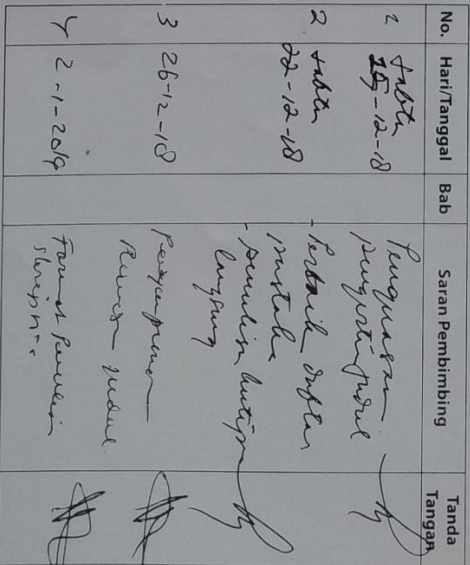 No. Hari/Tanggal Bab Saran Pembimbing Tanda Tangan
1 Sabtu
15-12-18
Penguasaan
pengertian judul
2 Sabtu
22-12-18
- Perbaiki daftar
pustaka
- penulisan kutipan
langsung
3 26-12-18
judul
4 2-1-2019
Format Penulisan
skripsi